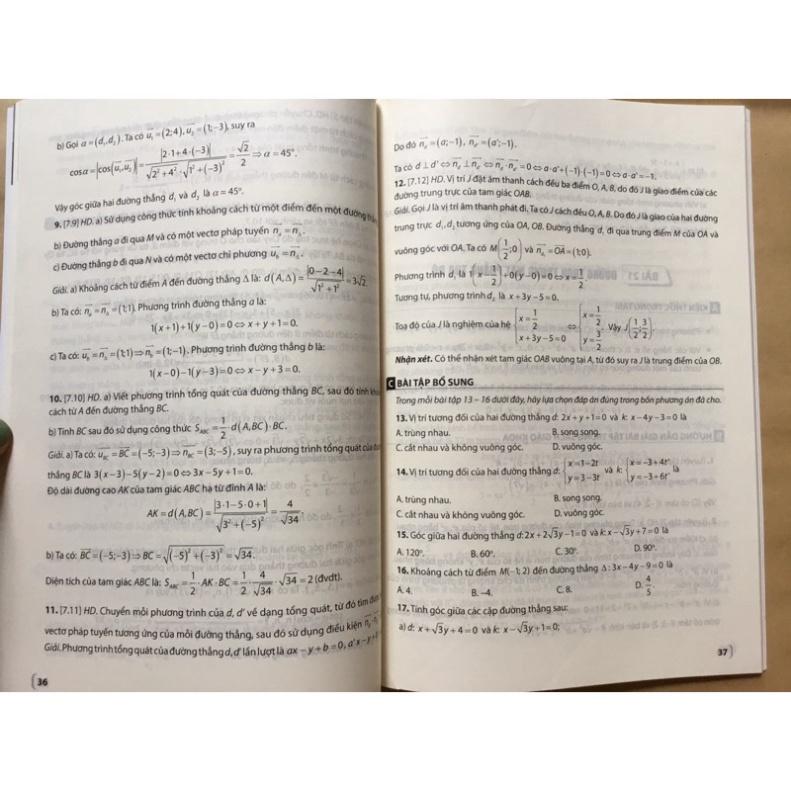 b) Gọi α = (d₁, d₂). Ta có u₁ = (2; 4), u₂ = (1; −3), suy ra
cosα = |cos(u₁, u₂)| = |2·1 + 4·(−3)| / (√(2² + 4²) · √(1² + (−3)²)) = √2/2 ⇒ α = 45°.
Vậy góc giữa hai đường thẳng d₁ và d₂ là α = 45°.
9. [7.9] HD. a) Sử dụng công thức tính khoảng cách từ một điểm đến một đường
b) Đường thẳng a đi qua M và có một vectơ pháp tuyến
c) Đường thẳng b đi qua N và có một vectơ chỉ phương
Giải. a) Khoảng cách từ điểm A đến đường thẳng Δ là: d(A, Δ) = |0 − 2 − 4| / √(1² + 1²) = 3√2.
b) Ta có: = (1; 1). Phương trình đường thẳng a là:
1(x + 1) + 1(y − 0) = 0 ⇔ x + y + 1 = 0.
c) Ta có: = (1; 1) ⇒ n_b = (1; −1). Phương trình đường thẳng b là:
1(x − 0) − 1(y − 3) = 0 ⇔ x − y + 3 = 0.
10. [7.10] HD. a) Viết phương trình tổng quát của đường thẳng BC, sau đó tính
cách từ A đến đường thẳng BC.
b) Tính BC sau đó sử dụng công thức S_ABC = 1/2 d(A, BC) · BC.
Giải. a) Ta có: u_BC = BC = (−5; −3) ⇒ n_BC = (3; −5), suy ra phương trình tổng quát của
thẳng BC là 3(x − 3) − 5(y − 2) = 0 ⇔ 3x − 5y + 1 = 0.
Độ dài đường cao AK của tam giác ABC hạ từ đỉnh A là:
AK = d(A, BC) = |3·1 − 5·0 + 1| / √(3² + (−5)²) = 4/√34.
b) Ta có: BC = (−5; −3) ⇒ BC = √((−5)² + (−3)²) = √34.
Diện tích của tam giác ABC là: S_ABC = 1/2 · AK · BC = 1/2 · 4/√34 · √34 = 2 (đvdt).
11. [7.11] HD. Chuyển mỗi phương trình của d, d' về dạng tổng quát, từ đó tìm
vectơ pháp tuyến tương ứng của mỗi đường thẳng, sau đó sử dụng điều kiện
Giải. Phương trình tổng quát của đường thẳng d, d' lần lượt là ax − y + b = 0, a'x − y +
36
Do đó n_d = (a; −1), n_d' = (a'; −1).
Ta có d ⊥ d' ⇔ n_d ⊥ n_d' ⇔ n_d · n_d' = 0 ⇔ a·a' + (−1)·(−1) = 0 ⇔ a·a' = −1.
12. [7.12] HD. Vị trí J đặt âm thanh cách đều ba điểm O, A, B, do đó J là giao điểm của các
đường trung trực của tam giác OAB.
Giải. Gọi J là vị trí âm thanh phát đi. Ta có J cách đều O, A, B. Do đó J là giao của hai đường
trung trực d₁, d₂ tương ứng của OA, OB. Đường thẳng d₁ đi qua trung điểm M của OA và
vuông góc với OA. Ta có M(1/2; 0) và = OA = (1; 0).
Phương trình d₁ là 1(x − 1/2) + 0(y − 0) = 0 ⇔ x = 1/2.
Tương tự, phương trình d₂ là x + 3y − 5 = 0.
Toạ độ của J là nghiệm của hệ {x = 1/2; x + 3y − 5 = 0 ⇔ {x = 1/2; y = 3/2. Vậy J(1/2; 3/2).
Nhận xét. Có thể nhận xét tam giác OAB vuông tại A, từ đó suy ra J là trung điểm của OB.
C BÀI TẬP BỔ SUNG
Trong mỗi bài tập 13 – 16 dưới đây, hãy lựa chọn đáp án đúng trong bốn phương án đã cho.
13. Vị trí tương đối của hai đường thẳng d: 2x + y + 1 = 0 và k: x − 4y − 3 = 0 là
A. trùng nhau. B. song song.
C. cắt nhau và không vuông góc. D. vuông góc.
14. Vị trí tương đối của hai đường thẳng d: {x = 1 − 2t; y = 3 − 3t và k: {x = −3 + 4t'; y = −3 + 6t' là
A. trùng nhau. B. song song.
C. cắt nhau và không vuông góc. D. vuông góc.
15. Góc giữa hai đường thẳng d: 2x + 2√3y − 1 = 0 và k: x − √3y + 7 = 0 là
A. 120°. B. 60°. C. 30°. D. 90°.
16. Khoảng cách từ điểm M(−1; 2) đến đường thẳng Δ: 3x − 4y − 9 = 0 là
A. 4. B. −4. C. 8. D. 4/5.
17. Tính góc giữa các cặp đường thẳng sau:
a) d: x + √3y + 4 = 0 và k: x − √3y + 1 = 0;
37